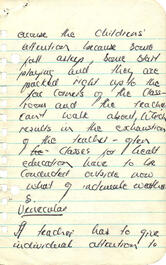 cause the childrens'
attention because some
fall asleep, some start
playing and they are
packed right up to the
far corners of the class
room and the teacher
can't walk about,
results in the exhaustion
of the teacher - often
the classes for health
education have to be
conducted outside now
what of inclemate weather
&.
Vernacular
If teacher has to give
individual attention to